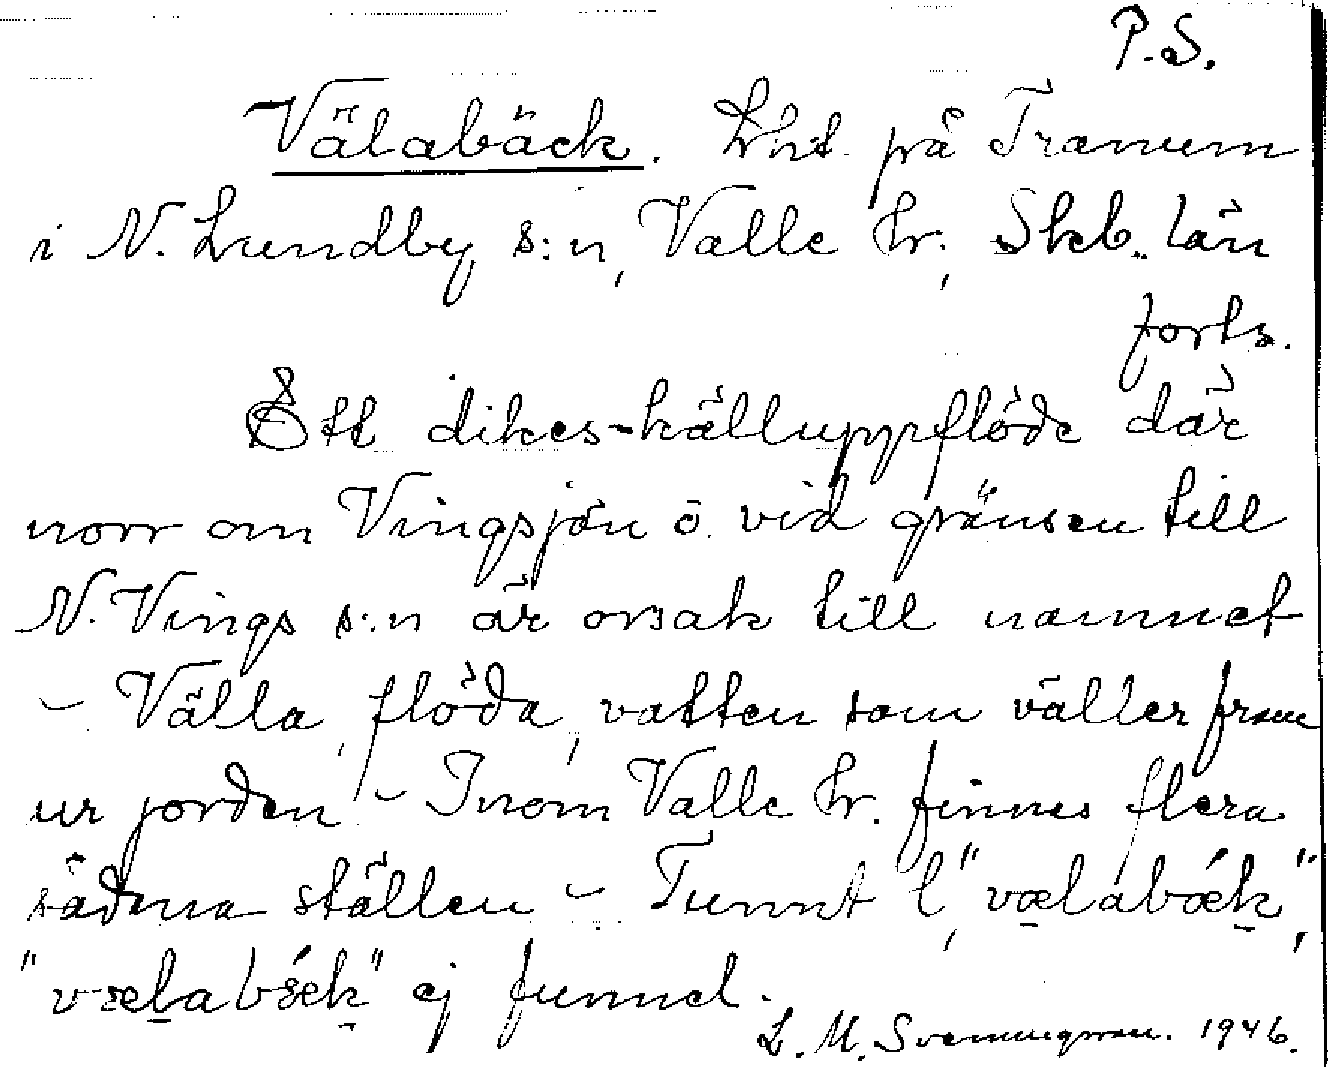 P.S.
Välabäck. Lht på Tranum
i N. Lundby s:n, Valle hr, Skb. län
forts.
Ett dikes-källuppflöde där
norr om Vingsjön o. vid gränsen till
N. Vings s:n är orsak till namnet
- Välla, flöda, vatten som väller fram
ur jorden - Inom Valle hr. finnes flera
sådana ställen - Tunnt l, "vælabæk",
"vælabæk" ej funnet.
L. M. Svenungsson. 1946.